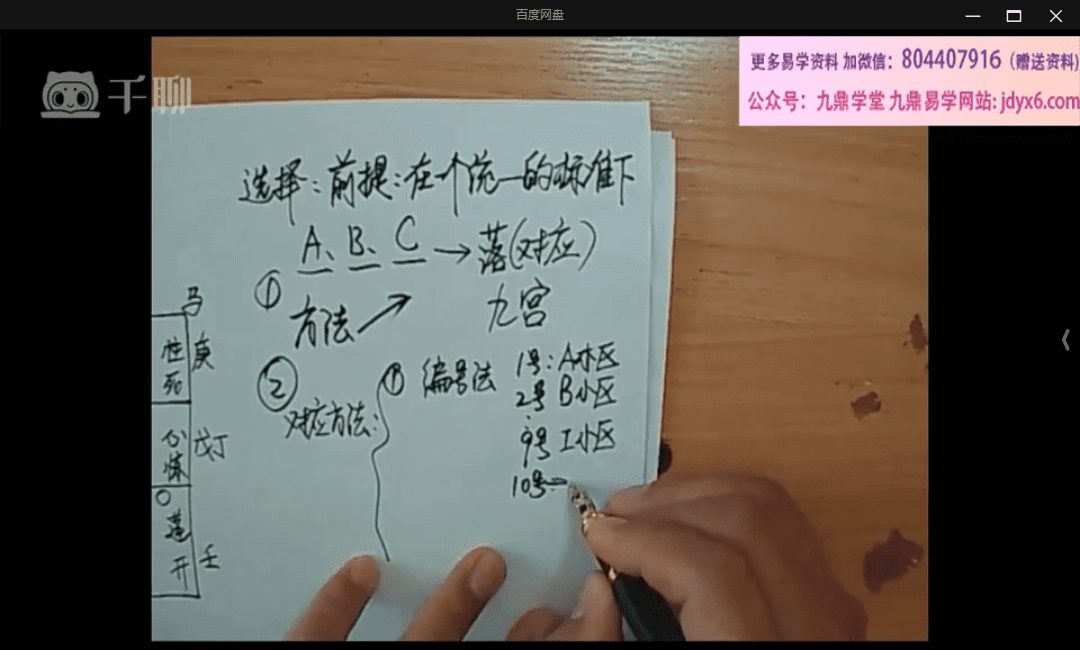 百度网盘
千聊
更多易学资料 加微信：804407916（赠送资料）
公众号：九鼎学堂 九鼎易学网站: jdyx6.com
选择：前提：在个统一的标准下
A、B、C → 落(对应)
① 方法 九宫
② 对应方法：
① 编号法
1号：A小区
2号 B小区
9号 I小区
10号
马
庚
死
戊丁
蓬
开
壬